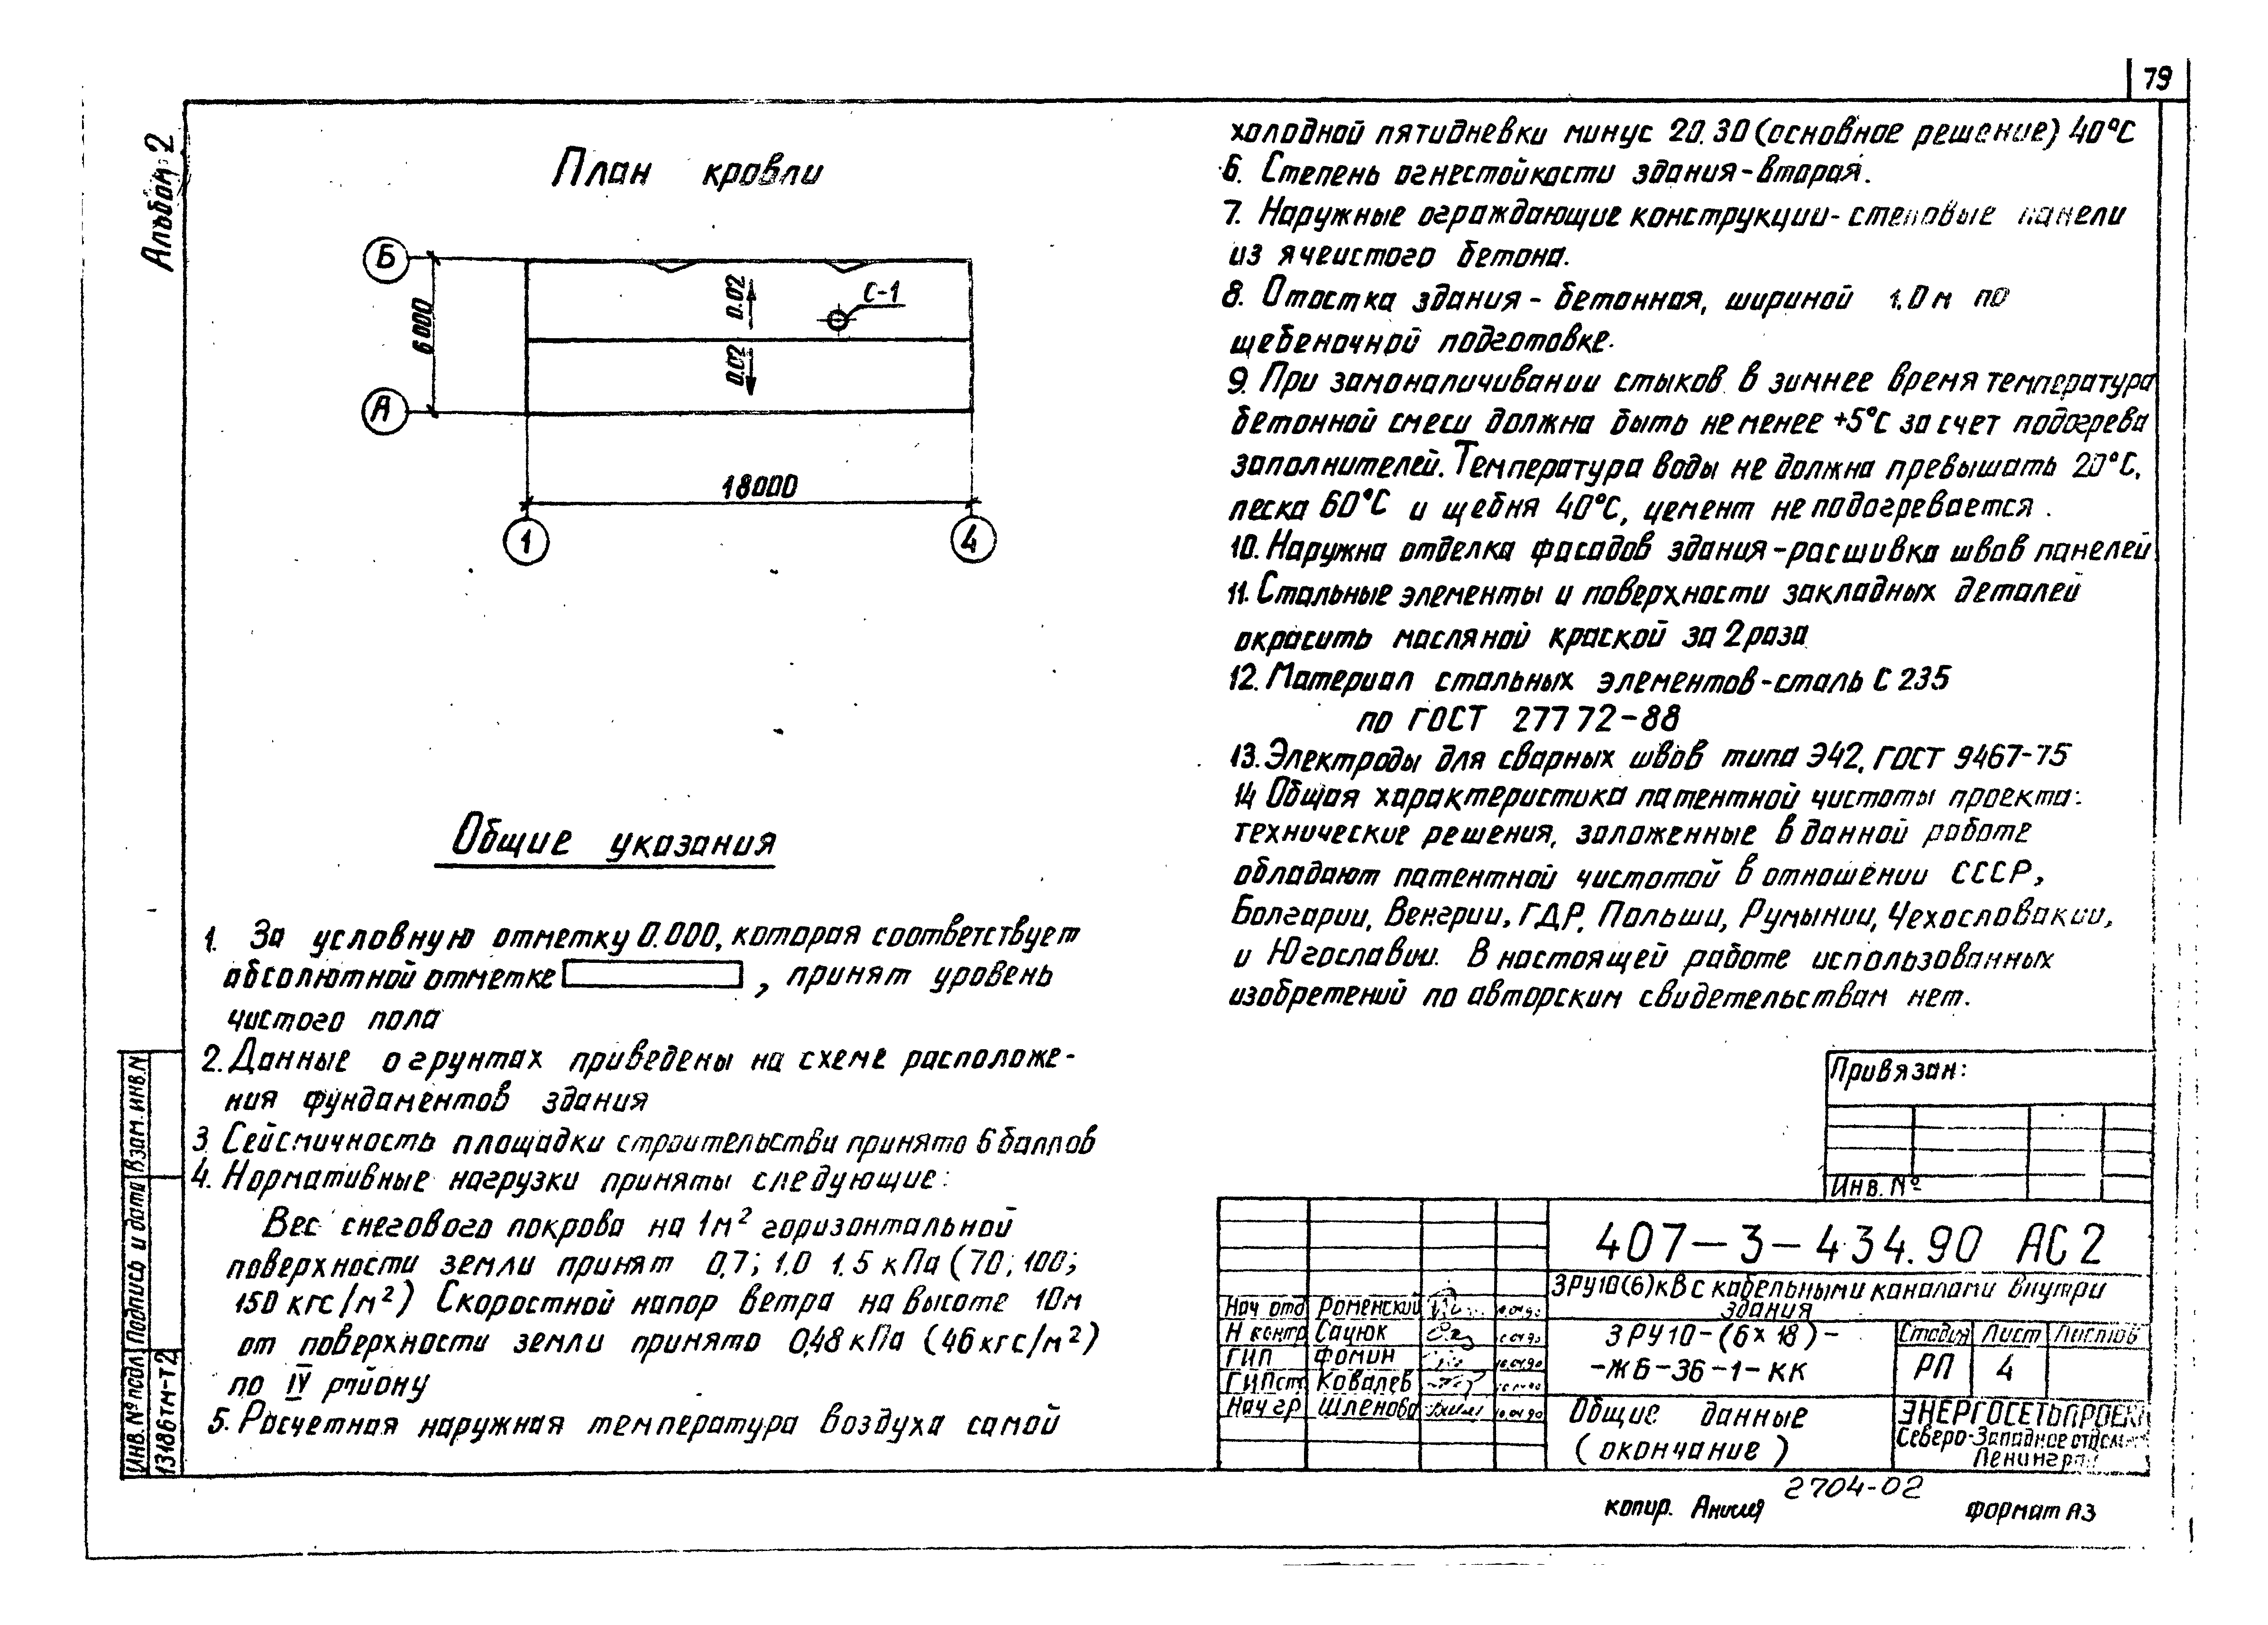 79
Альбом 2
План кровли
Б
6000
А
0.02
0.02
С-1
18000
1
4
Общие указания
1. За условную отметку 0.000, которая соответствует
абсолютной отметке , принят уровень
чистого пола
2. Данные о грунтах приведены на схеме расположе-
ния фундаментов здания
3 Сейсмичность площадки строительства принято 6 баллов
4. Нормативные нагрузки приняты следующие:
Вес снегового покрова на 1м² горизонтальной
поверхности земли принят 0,7; 1.0 1.5 кПа (70; 100;
150 кгс/м²) Скоростной напор ветра на высоте 10м
от поверхности земли принято 0,48 кПа (46 кгс/м²)
по IV району
5. Расчетная наружная температура воздуха самой
холодной пятидневки минус 20. 30 (основное решение) 40°С
6. Степень огнестойкости здания-вторая.
7. Наружные ограждающие конструкции-стеновые панели
из ячеистого бетона.
8. Отмостка здания - бетонная, шириной 1.0м по
щебеночной подготовке.
9. При замоноличивании стыков в зимнее время температура
бетонной смеси должна быть не менее +5°С за счет подогрева
заполнителей. Температура воды не должна превышать 20°С,
песка 60°С и щебня 40°С, цемент не подогревается.
10. Наружна отделка фасадов здания-расшивка швов панелей
11. Стальные элементы и поверхности закладных деталей
окрасить масляной краской за 2 раза
12. Материал стальных элементов-сталь С 235
по ГОСТ 27772-88
13. Электроды для сварных швов типа Э42, ГОСТ 9467-75
14 Общая характеристика патентной чистоты проекта:
технические решения, заложенные в данной работе
обладают патентной чистотой в отношении СССР,
Болгарии, Венгрии, ГДР, Польши, Румынии, Чехословакии,
и Югославии. В настоящей работе использованных
изобретений по авторским свидетельствам нет.
Привязан:
Инв. №
407-3-434.90 АС2
ЗРУ10(6)кВ с кабельными каналами внутри
здания
Нач отд Роменский
Н контр Сацюк
ГИП Фомин 10.01.90
ГИПст Ковалев
Нач гр Шленова 10.01.90
ЗРУ10-(6х18)-
-Ж6-36-1-КК
Стадия Лист Листов
РП 4
Общие данные
(окончание)
ЭНЕРГОСЕТЬПРОЕКТ
Северо-Западное отдел
Ленинград
Взам. инв. №
Подпись и дата
Инв. № подл
13186тм-Т2
2704-02
копир.
формат А3